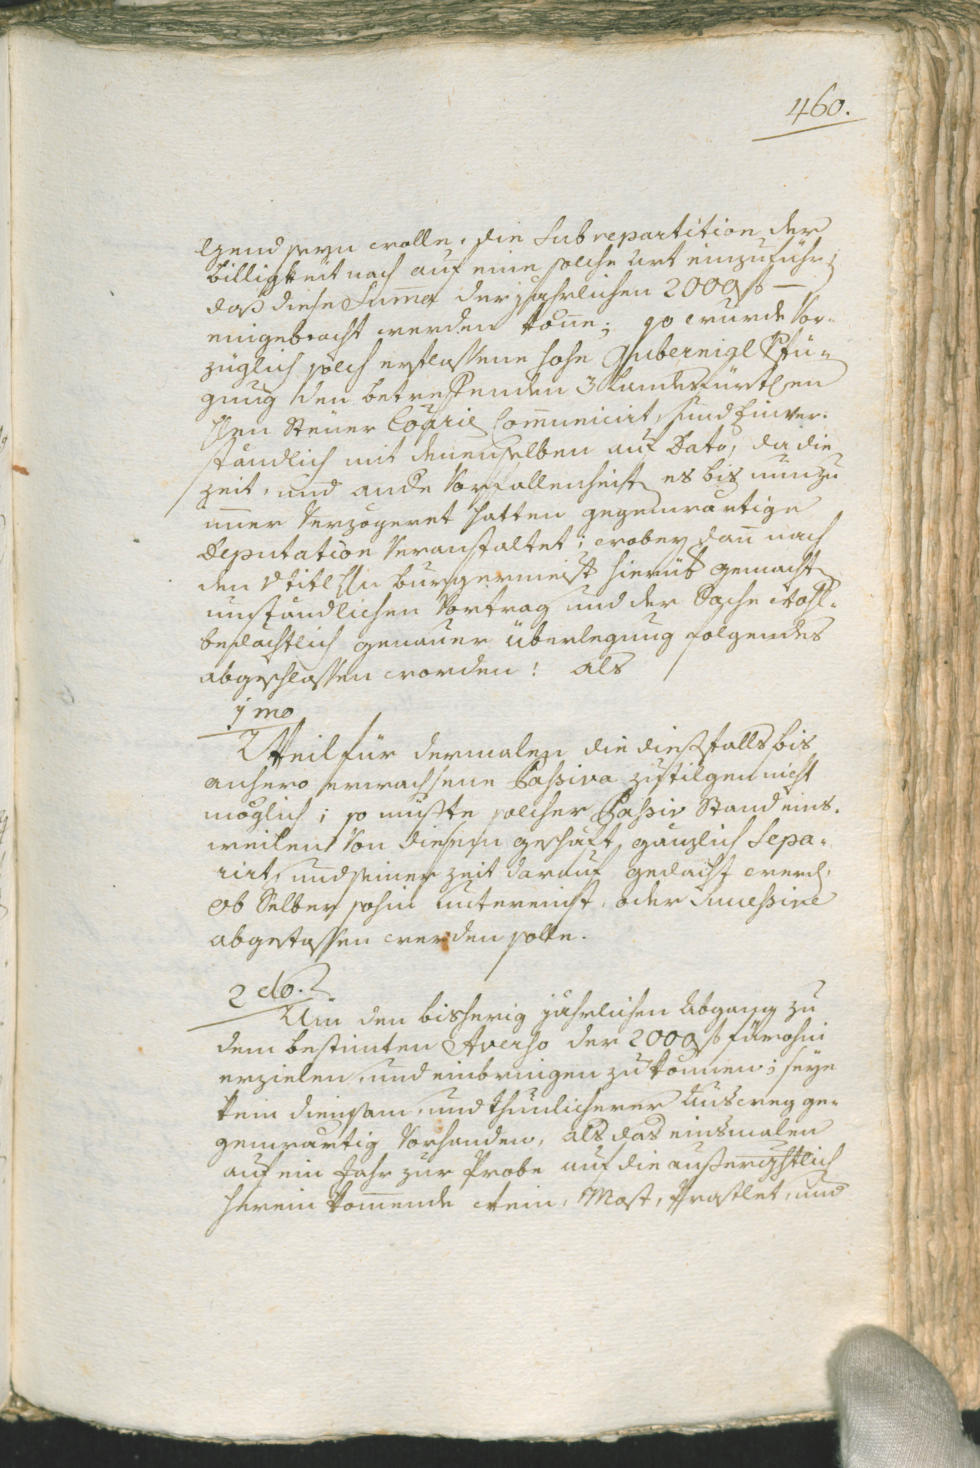 460.
seyn wolle, die Subrepartition der
billigkeit nach auf eine solche Art einzuführen
daß diese Summa der jährlichen 2000 f —
eingebracht werden könne; so wurde Vor-
züglich solch erflossene hohe Gubernial Verfü-
gung den betreffenden 3
Steuer Communicirt, und Einver-
ständlich mit denenselben auf Dato, da die
zeit, und andere Vorfallenheiten es bis nunzu
immer Verzögeret hatten gegenwärtige
Deputation Veranstaltet; wobey dann nach
den Titl Hr Burgermeister hierüber gemacht
umständlichen Vortrag und der Sache wohl-
bedächtlich genauer überlegung folgendes
abgeschlossen worden: als
1mo
Weil für dermalen die dießfalls bis
anhero erwachsene Passiva zu tilgen nicht
möglich; so müßte solcher Passiv Stand eins-
weilen Von diesem geschäft gänzlich Sepa-
rirt, und seiner Zeit darauf gedacht werden,
ob Selber sohin untereinst, oder Successive
abgestossen werden solle.
2do.
Um den bisherig jährlichen Abgang zu
dem bestimten Averso der 2000 f fürohin
erzielen, und einbringen zu können; seye
kein diensam, und thunlicherer Ausweg ge-
genwärtig Vorhanden, als das einsmalen
auf ein Jahr zur Probe auf die außergerichtlich
herein komende Wein, Most, Praslet, und